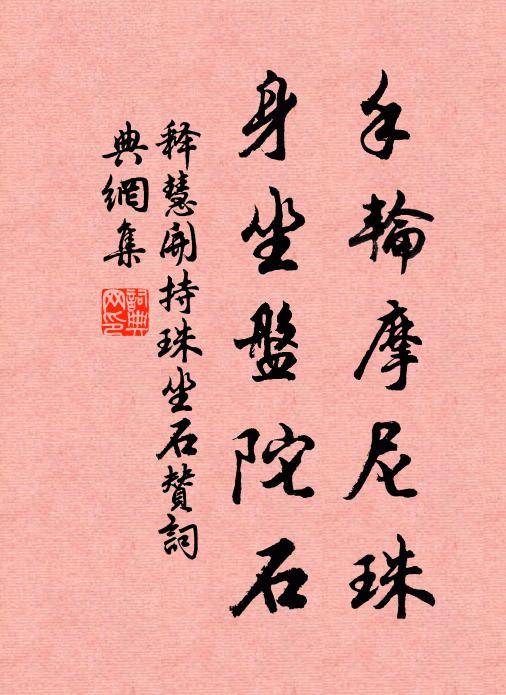 手輪摩尼珠
身坐盤陀石
释慧開持珠坐石贊詞
典網集
詞典网印